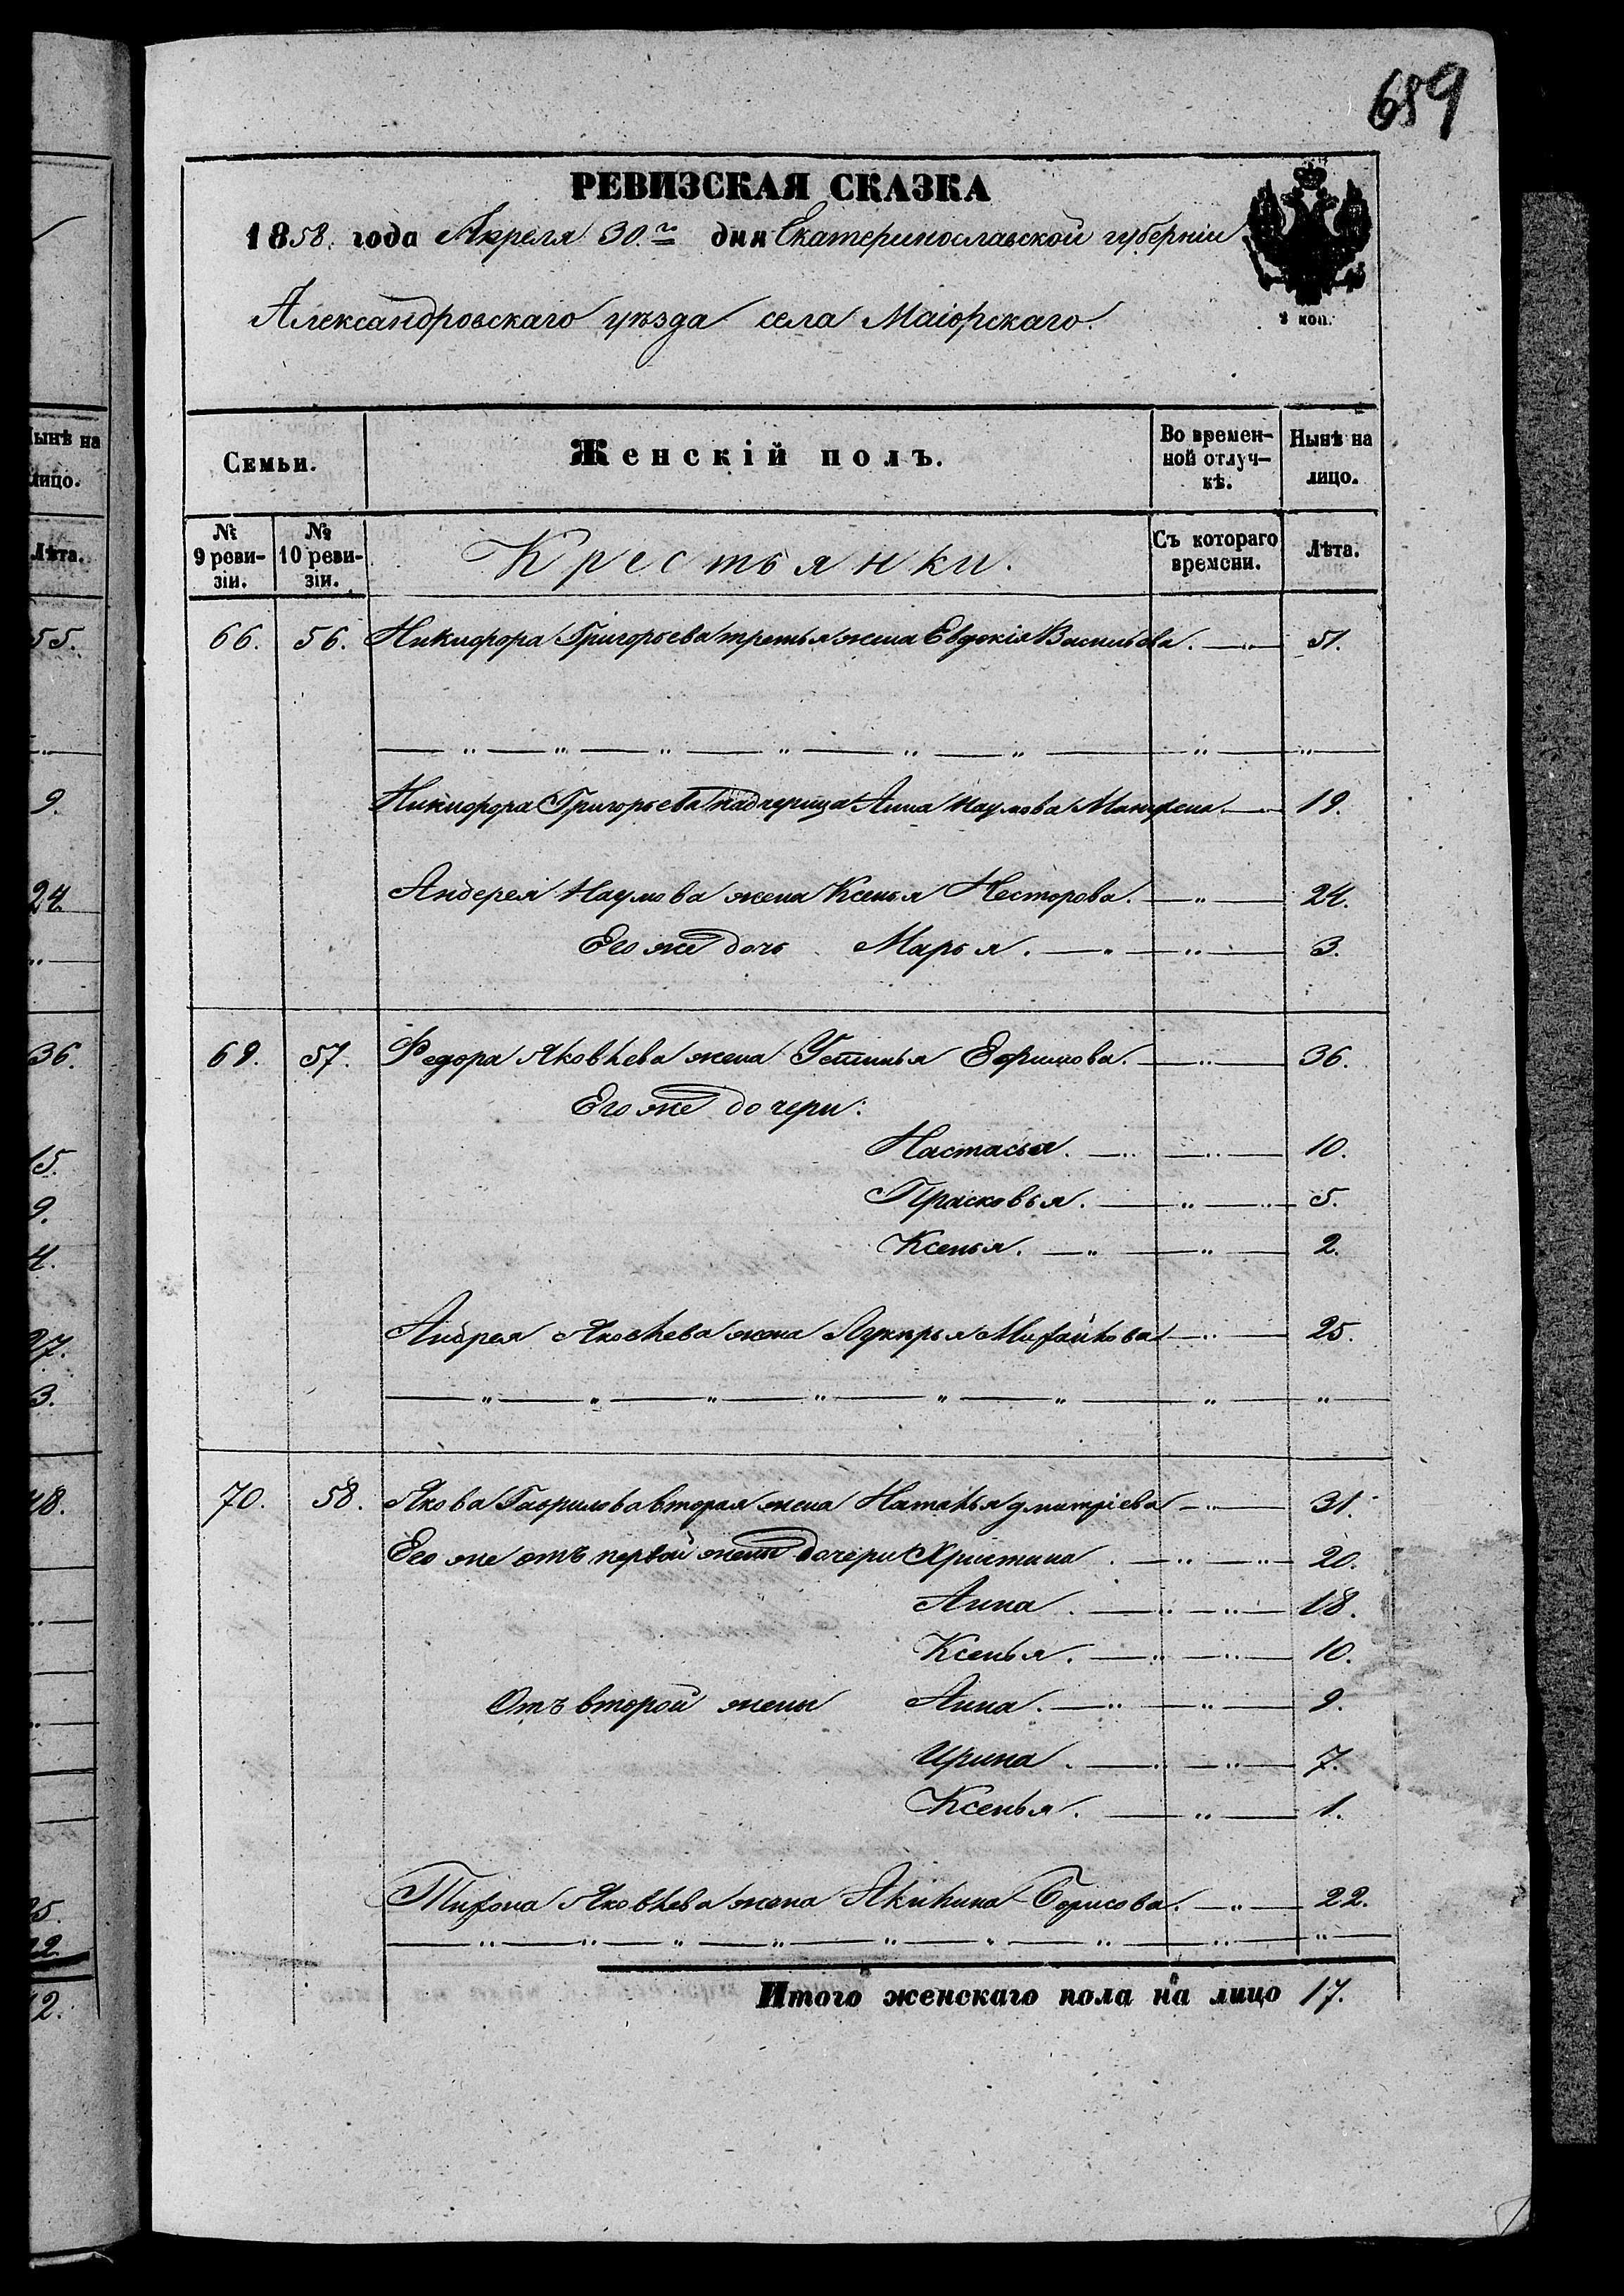 689
РЕВИЗСКАЯ СКАЗКА
1858. года Апреля 30.го дня Екатеринославской губерніи
Александровскаго уѣзда села Маіорскаго.
3 коп.
Семьи. Женскій полъ. Во времен-
ной отлуч-
кѣ. Нынѣ на
лицо.
№
9 реви-
зіи. №
10 реви-
зіи. Крестьянки. Съ котораго
времени. Лѣта.
66. 56. Никифора Григорьева третья жена Евдокія Васильева. 51.
Никифора Григорьева надчерица Анна Наумова 19.
Андерея Наумова жена Ксенья Несторова. 24.
Его же дочь Марья. 3.
69. 57. Федора Яковлева жена Устинья Ефимова. 36.
Его же дочери:
Настасья. 10.
Прасковья. 5.
Ксенья. 2.
Андрея Яковлева жена Лукерья Михайлова 25.
70. 58. Якова Гаврилова вторая жена Наталья Дмитріева 31.
Его же отъ первой жены дочери Христина. 20.
Анна. 18.
Ксенья. 10.
Отъ второй жены Анна. 9.
Ирина. 7.
Ксенья. 1.
Тихона Яковлева жена Акилина Борисова. 22.
Итого женскаго пола на лицо 17.
ынѣ на
лицо.
Лѣта.
55.
9.
24.
36.
15.
9.
4.
27.
3.
48.